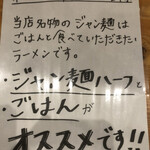 当店名物のジャン麺は
ごはんと食べていただきたい
ラーメンです。
・ジャン麺ハーフと
・ごはんが
オススメです!!